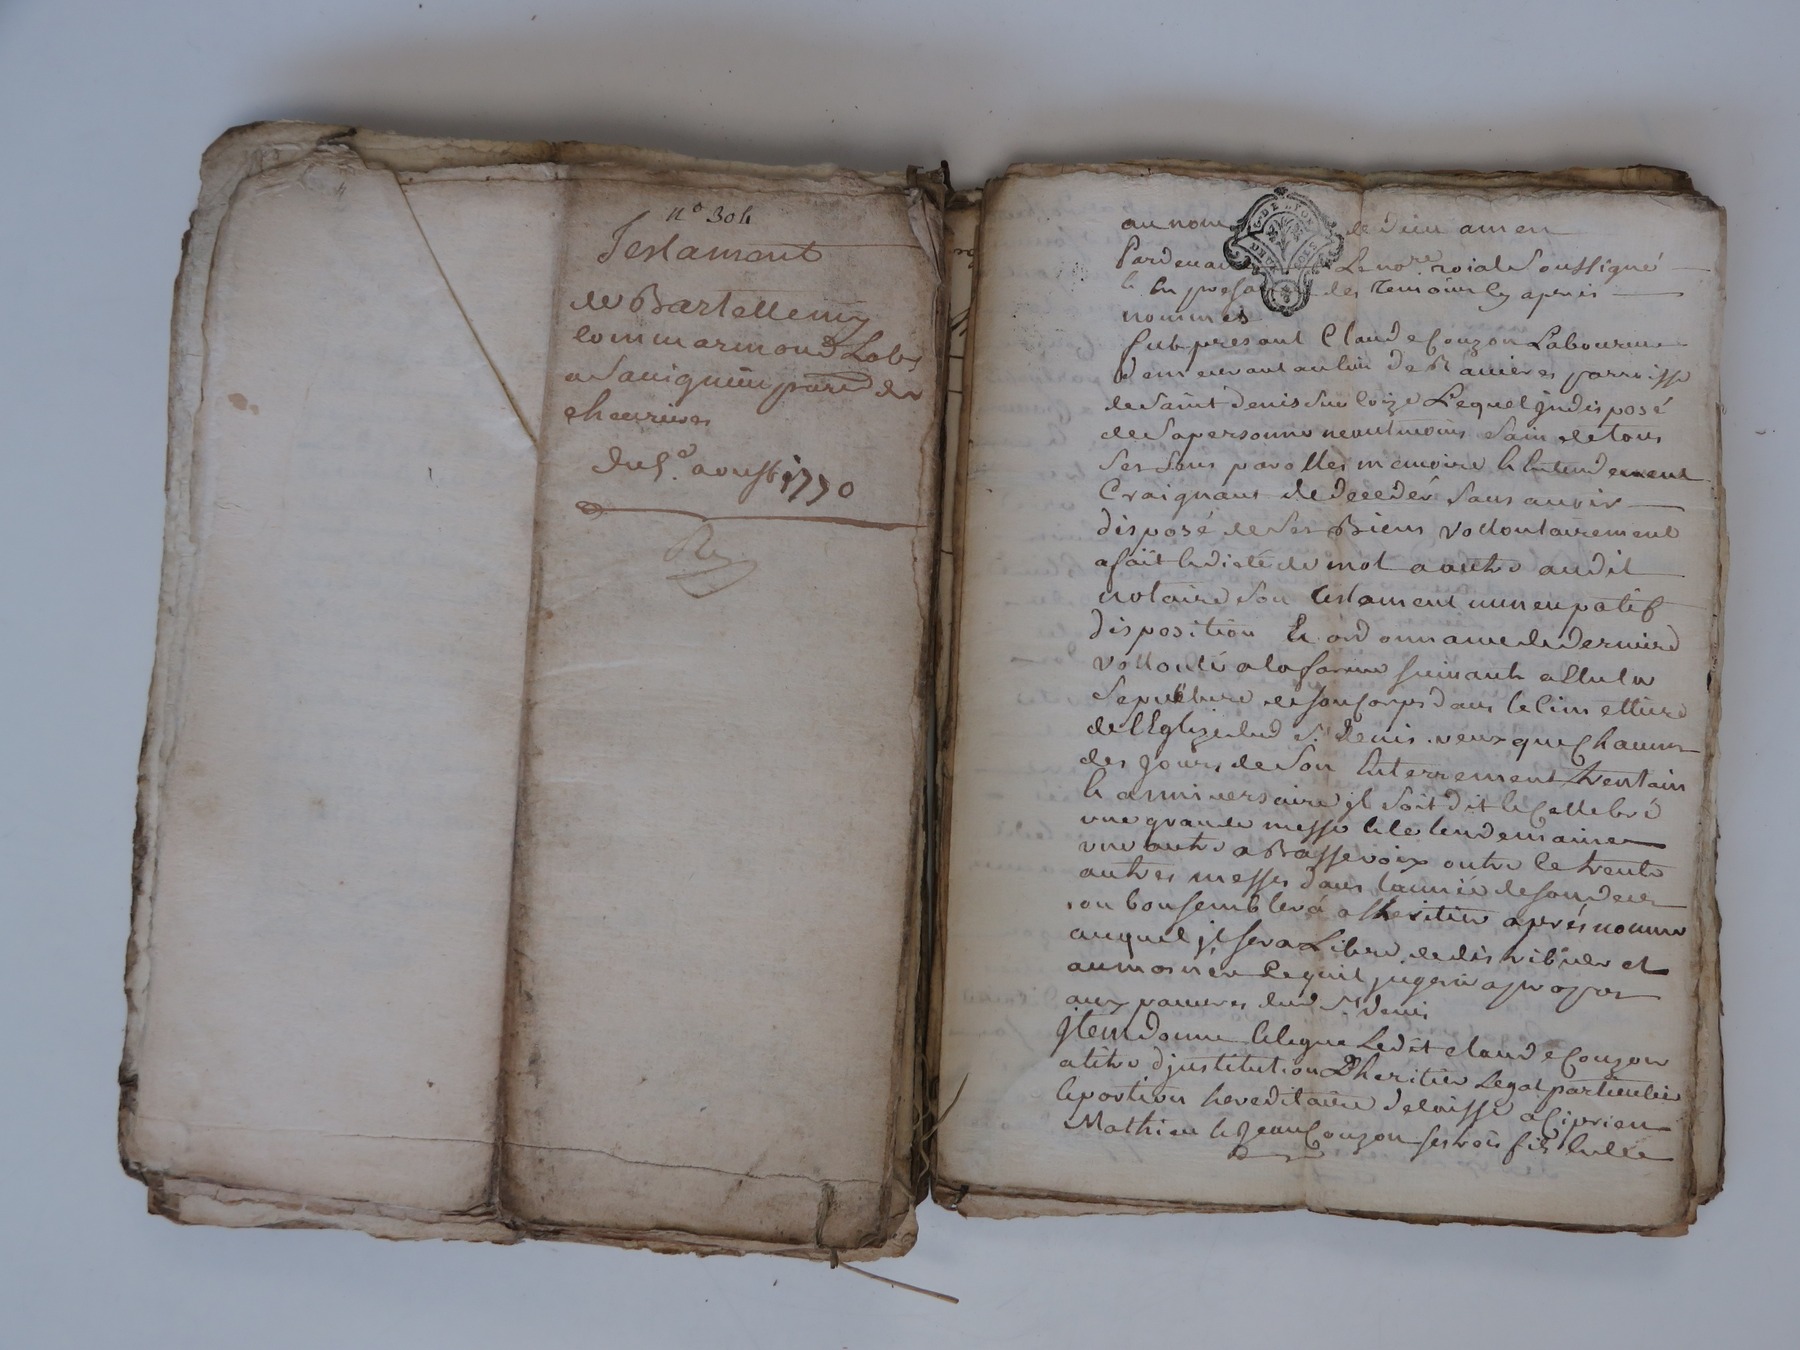 n.º 304
Testamant
de Bartellemy
Commarmond Lab.r
a Sauignieu par.se de
cheurieres
du 5.e aoust 1770
au nom de dieu amen
Pardeuant Le no.re roial Soussigné
& en presance des temoins cy aprés
nommes
fut presant Claude Couzon Laboureur
demeurant au lieu de Ranieres parroisse
de Saint denis Sur Coize Lequel Indisposé
de Sa personne neantmoins Sain de tous
Ses Sens parolles memoire & Entendement
Craignant de deceder Sans auoir
disposé de Ses Biens vollontairement
a fait & dicté de mot a autre audit
notaire Son testament nuncupatif
disposition & ordonnance de derniere
vollonté a la forme suiuante a Elu la
Sepulture de son corps dans le Cimettiere
de l'Eglize dud S.t denis. veux que Chacun
des jours de Son Enterrement trentain
& anniuersaire jl Soit dit & Cellebré
une grande messe & le lendemain
une autre a Basse voix outre & trente
autres messes dans l'année de son deces
ou bon semblera a l'heritier aprés nommé
auquel jl sera Libre de distribuer et
aumosner Ce quil jugera a propos
aux pauures dud S.t denis
jtem donne & legue Ledit claude Couzon
a titre d'institution D'heritier Legat particulier
& portion hereditaire delaisse a Ciprien
Mathieu & Jean Couzon ses trois fils